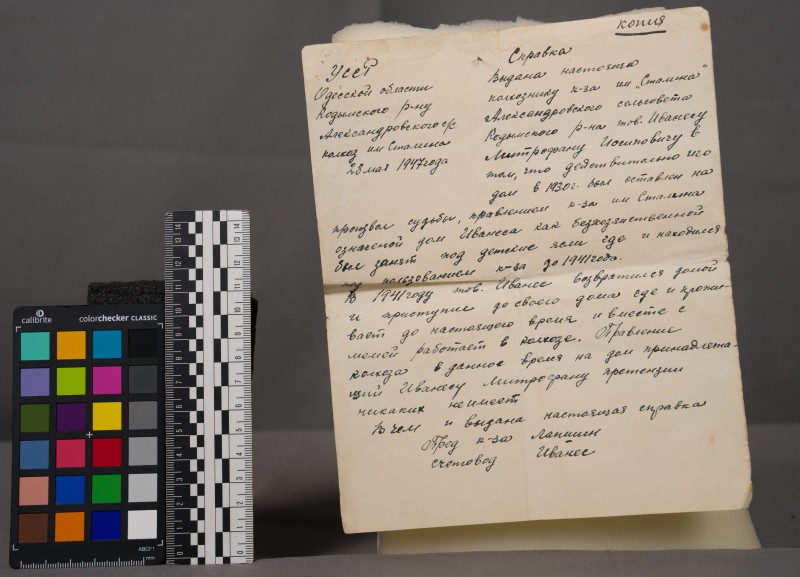 копия
УССР
Одесской области
Кодымского р-ну
Александровского с/с
колхоз им Сталина
28 мая 1947 года
Справка
Выдана настоящая
колхознику к-за им "Сталина"
Александровского сельсовета
Кодымского р-на тов. Иванесу
Митрофану Иосиповичу в
том, что действительно его
дом в 1930 г. был оставлен на
произвол судьбы, правлением к-за им Сталина
означеной дом Иванеса как безхозяственной
был занят под детские ясли где и находился
под пользованием к-за до 1941 года.
В 1941 году тов. Иванес возвратился домой
и приступил до своего дома где и прожи-
вает до настоящого время и вместе с
семей работает в колхозе. Правление
колхоза в данное время на дом принадлежа-
щий Иванесу Митрофану претензии
никаких неимеет
В чем и выдана настоящая справка
Пред к-за Лапшин
счетовод Иванес
calibrite
colorchecker CLASSIC
ABCF1
mm